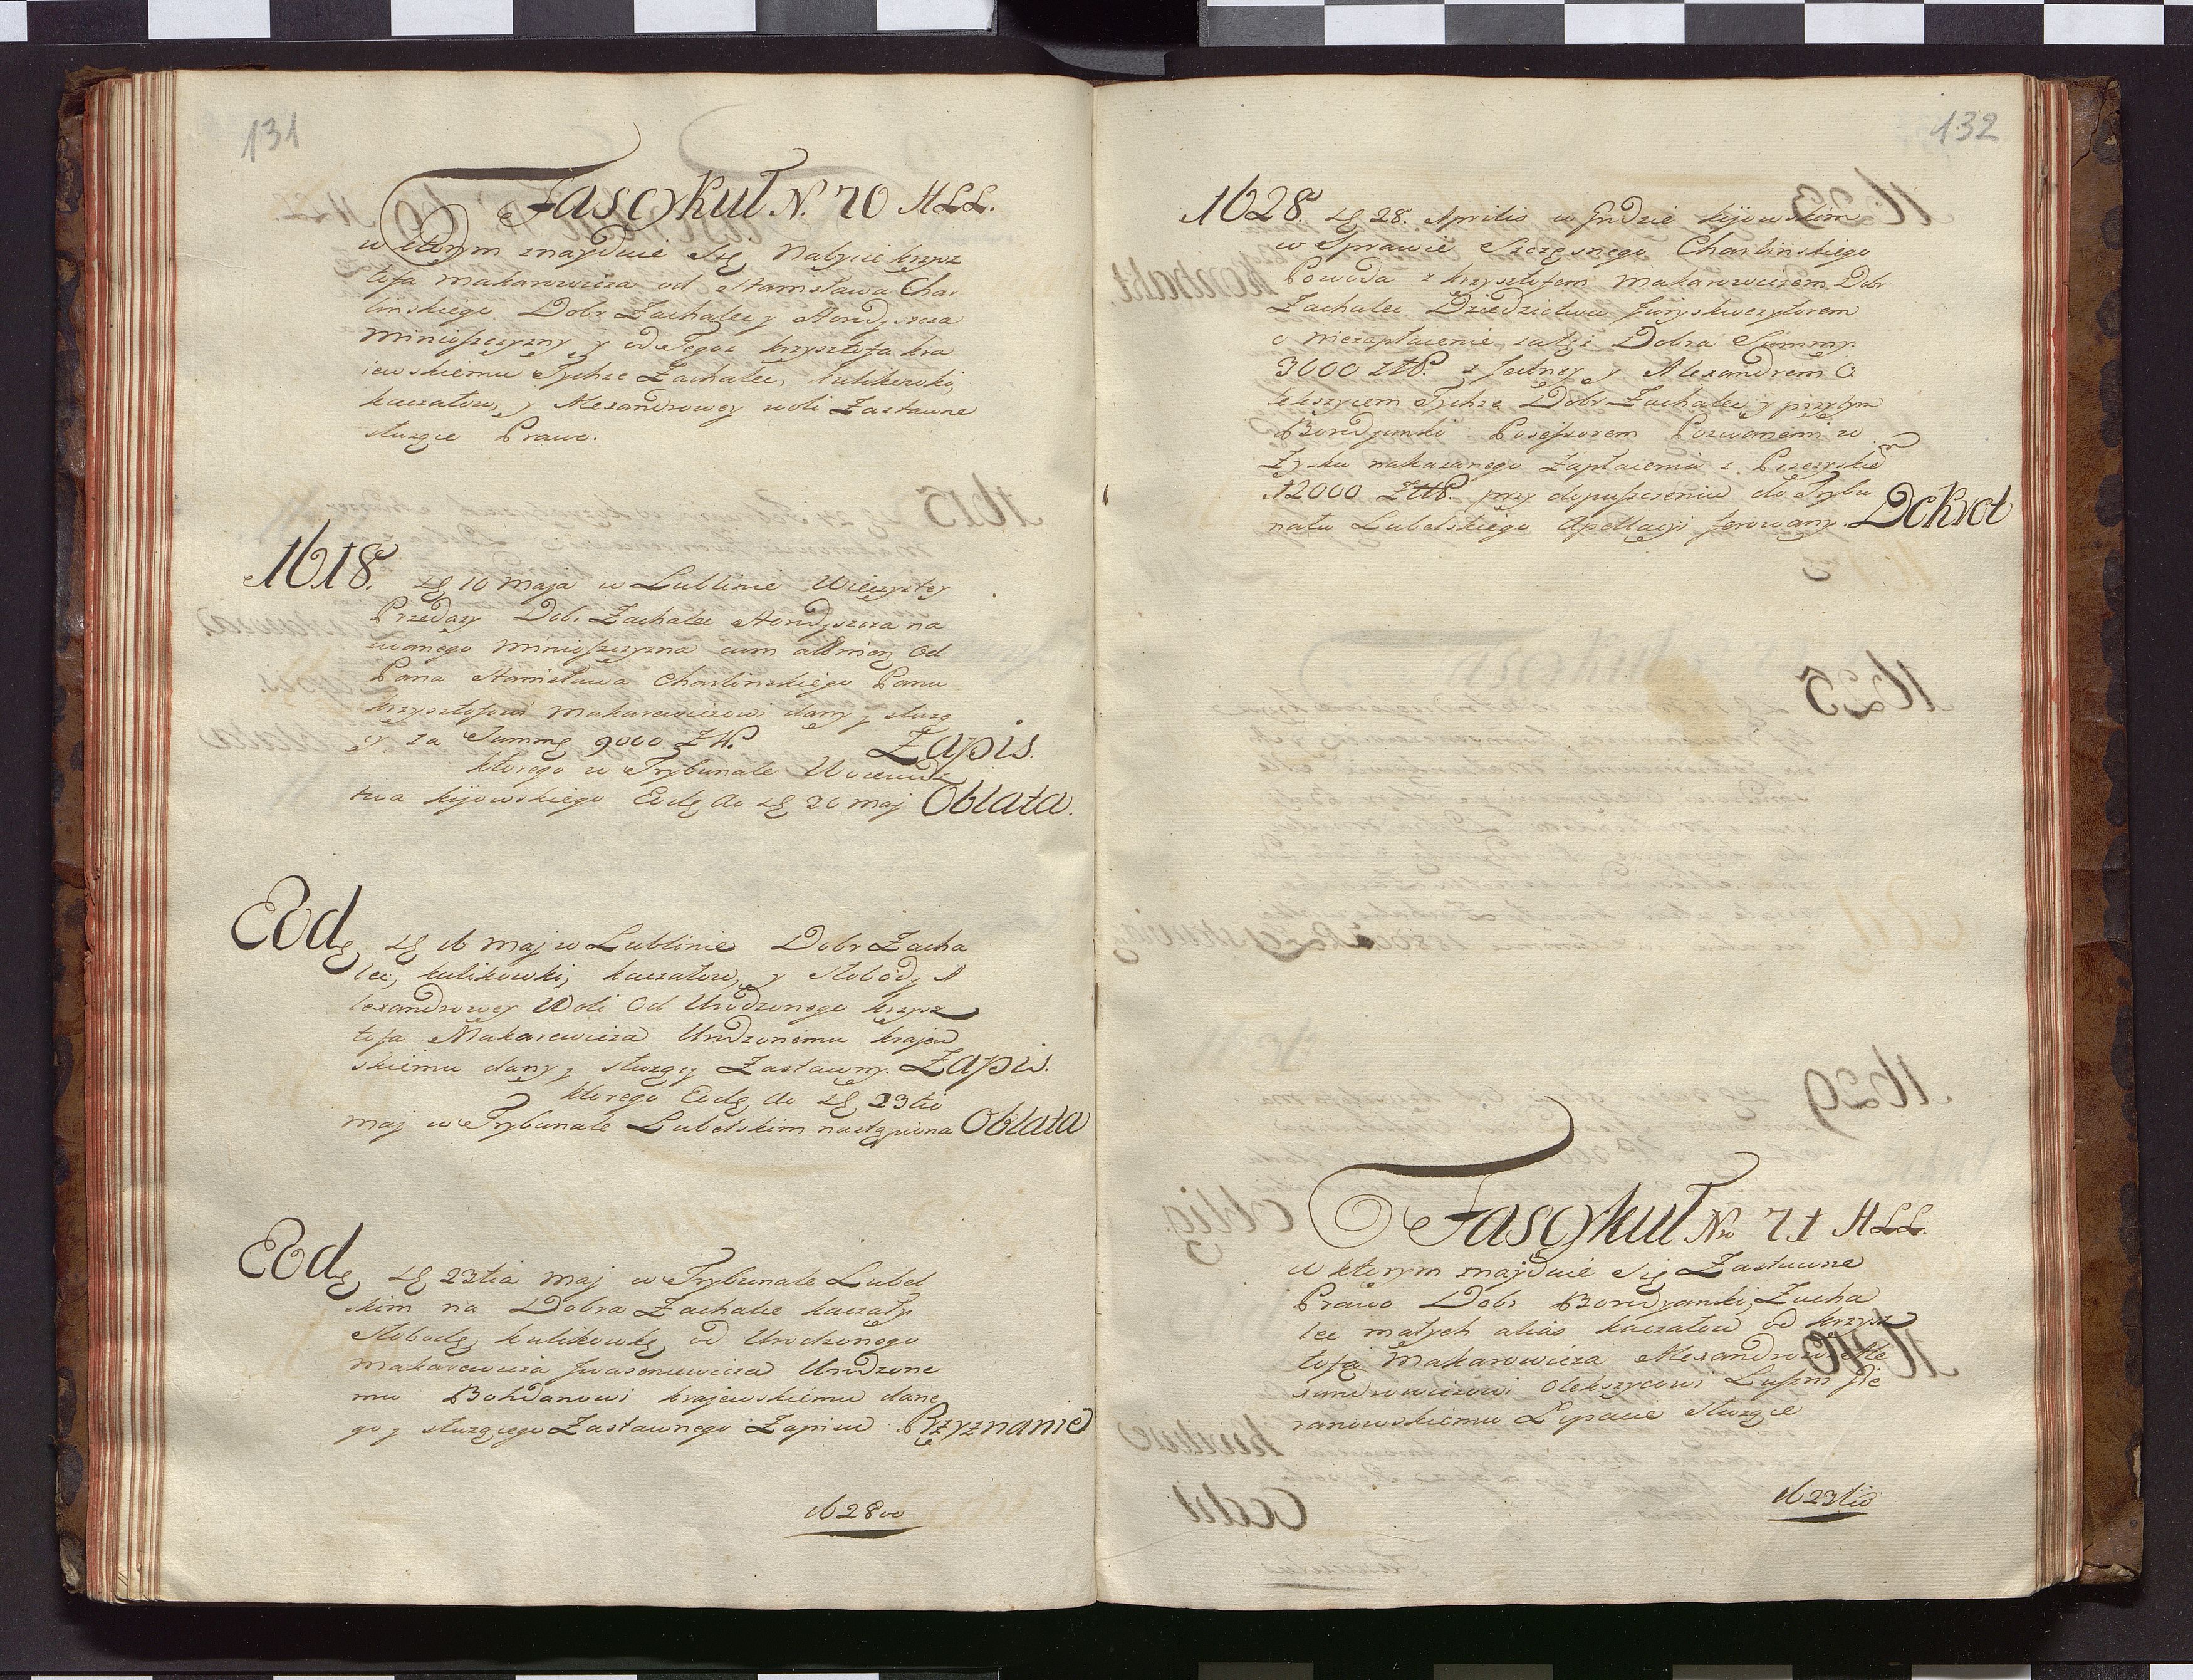 131
Fascykuł N. 70 ALL.
w ktorym znayduie się Nabycie krzysz
tofa Makarowicza od Stanisława Char
linskiego Dobr Zachalec y Horodyszcza
Miniosczyzny y od Tegoż krzysztofa kra
iewskiemu Tychże Zachalec, kulikowki,
kaczałow, y Alexandrowey woli Zastawne
służące Prawo.
1618. 10 Maja w Lublinie Wieczystey
Przedazy Dobr Zachalec Horodyszcza na
zwanego Miniosczyzna cum attinen Od
Pana Stanisława Charlinskiego Panu
krzysztofowi Makarewiczowi dany y służą
cy za Summę 9000. Zł.
Zapis.
ktorego w Trybunale Woiewodz
twa kijowskiego Eodę Ao 20 Maj Oblata.
Eodę 16 Maj w Lublinie Dobr Zacha
lec, kulikowki, kaczałow, y Słobody A
lexandrowey Woli Od Urodzonego krzysz
tofa Makarewicza Urodzonemu krajew
skiemu dany y służący Zastawny. Zapis.
ktorego Eodę Ao 23tio
Maj w Trybunale Lubelskim nastąpiona Oblata
Eodę 23tia Maj w Trybunale Lubel
skim na Dobra Zachalce kaczały
Słobodę kulikowkę od Urodzonego
Makarewicza Urodzone
mu Bohdanowi krajewskiemu dane
go y służącego Zastawnego Zapisu Przyznanie
1628vo
132
1628. 28. Aprilis w Grodzie kijowskim
w Sprawie Szczęsnego Charlinskiego
Powoda z krzysztofem Makarowiczem Dobr
Zachalec Dziedzictwa
o niezapłacenie za też Dobra Summy.
3000 złłP. z Jedney y Alexandrem O
lekszycem Tychże Dobr Zachalec y przytym
Borodzianki Possessorem Pozwanemi w
Zysku nakazanego Zapłacenia z
12000 ZłłP. przy dopuszczeniu do Trybu
nału Lubelskiego Apellacyi ferowany. Dekret
Fascykuł Nro 71 ALL.
w ktorym znajduie się Zastawne
Prawo Dobr Borodzianki, Zacha
lec małych alias kaczałow od krzysz
tofa Makarowicza Alexandrowi Ale
xandrowiczowi Olekszycowi
służące
1623tio